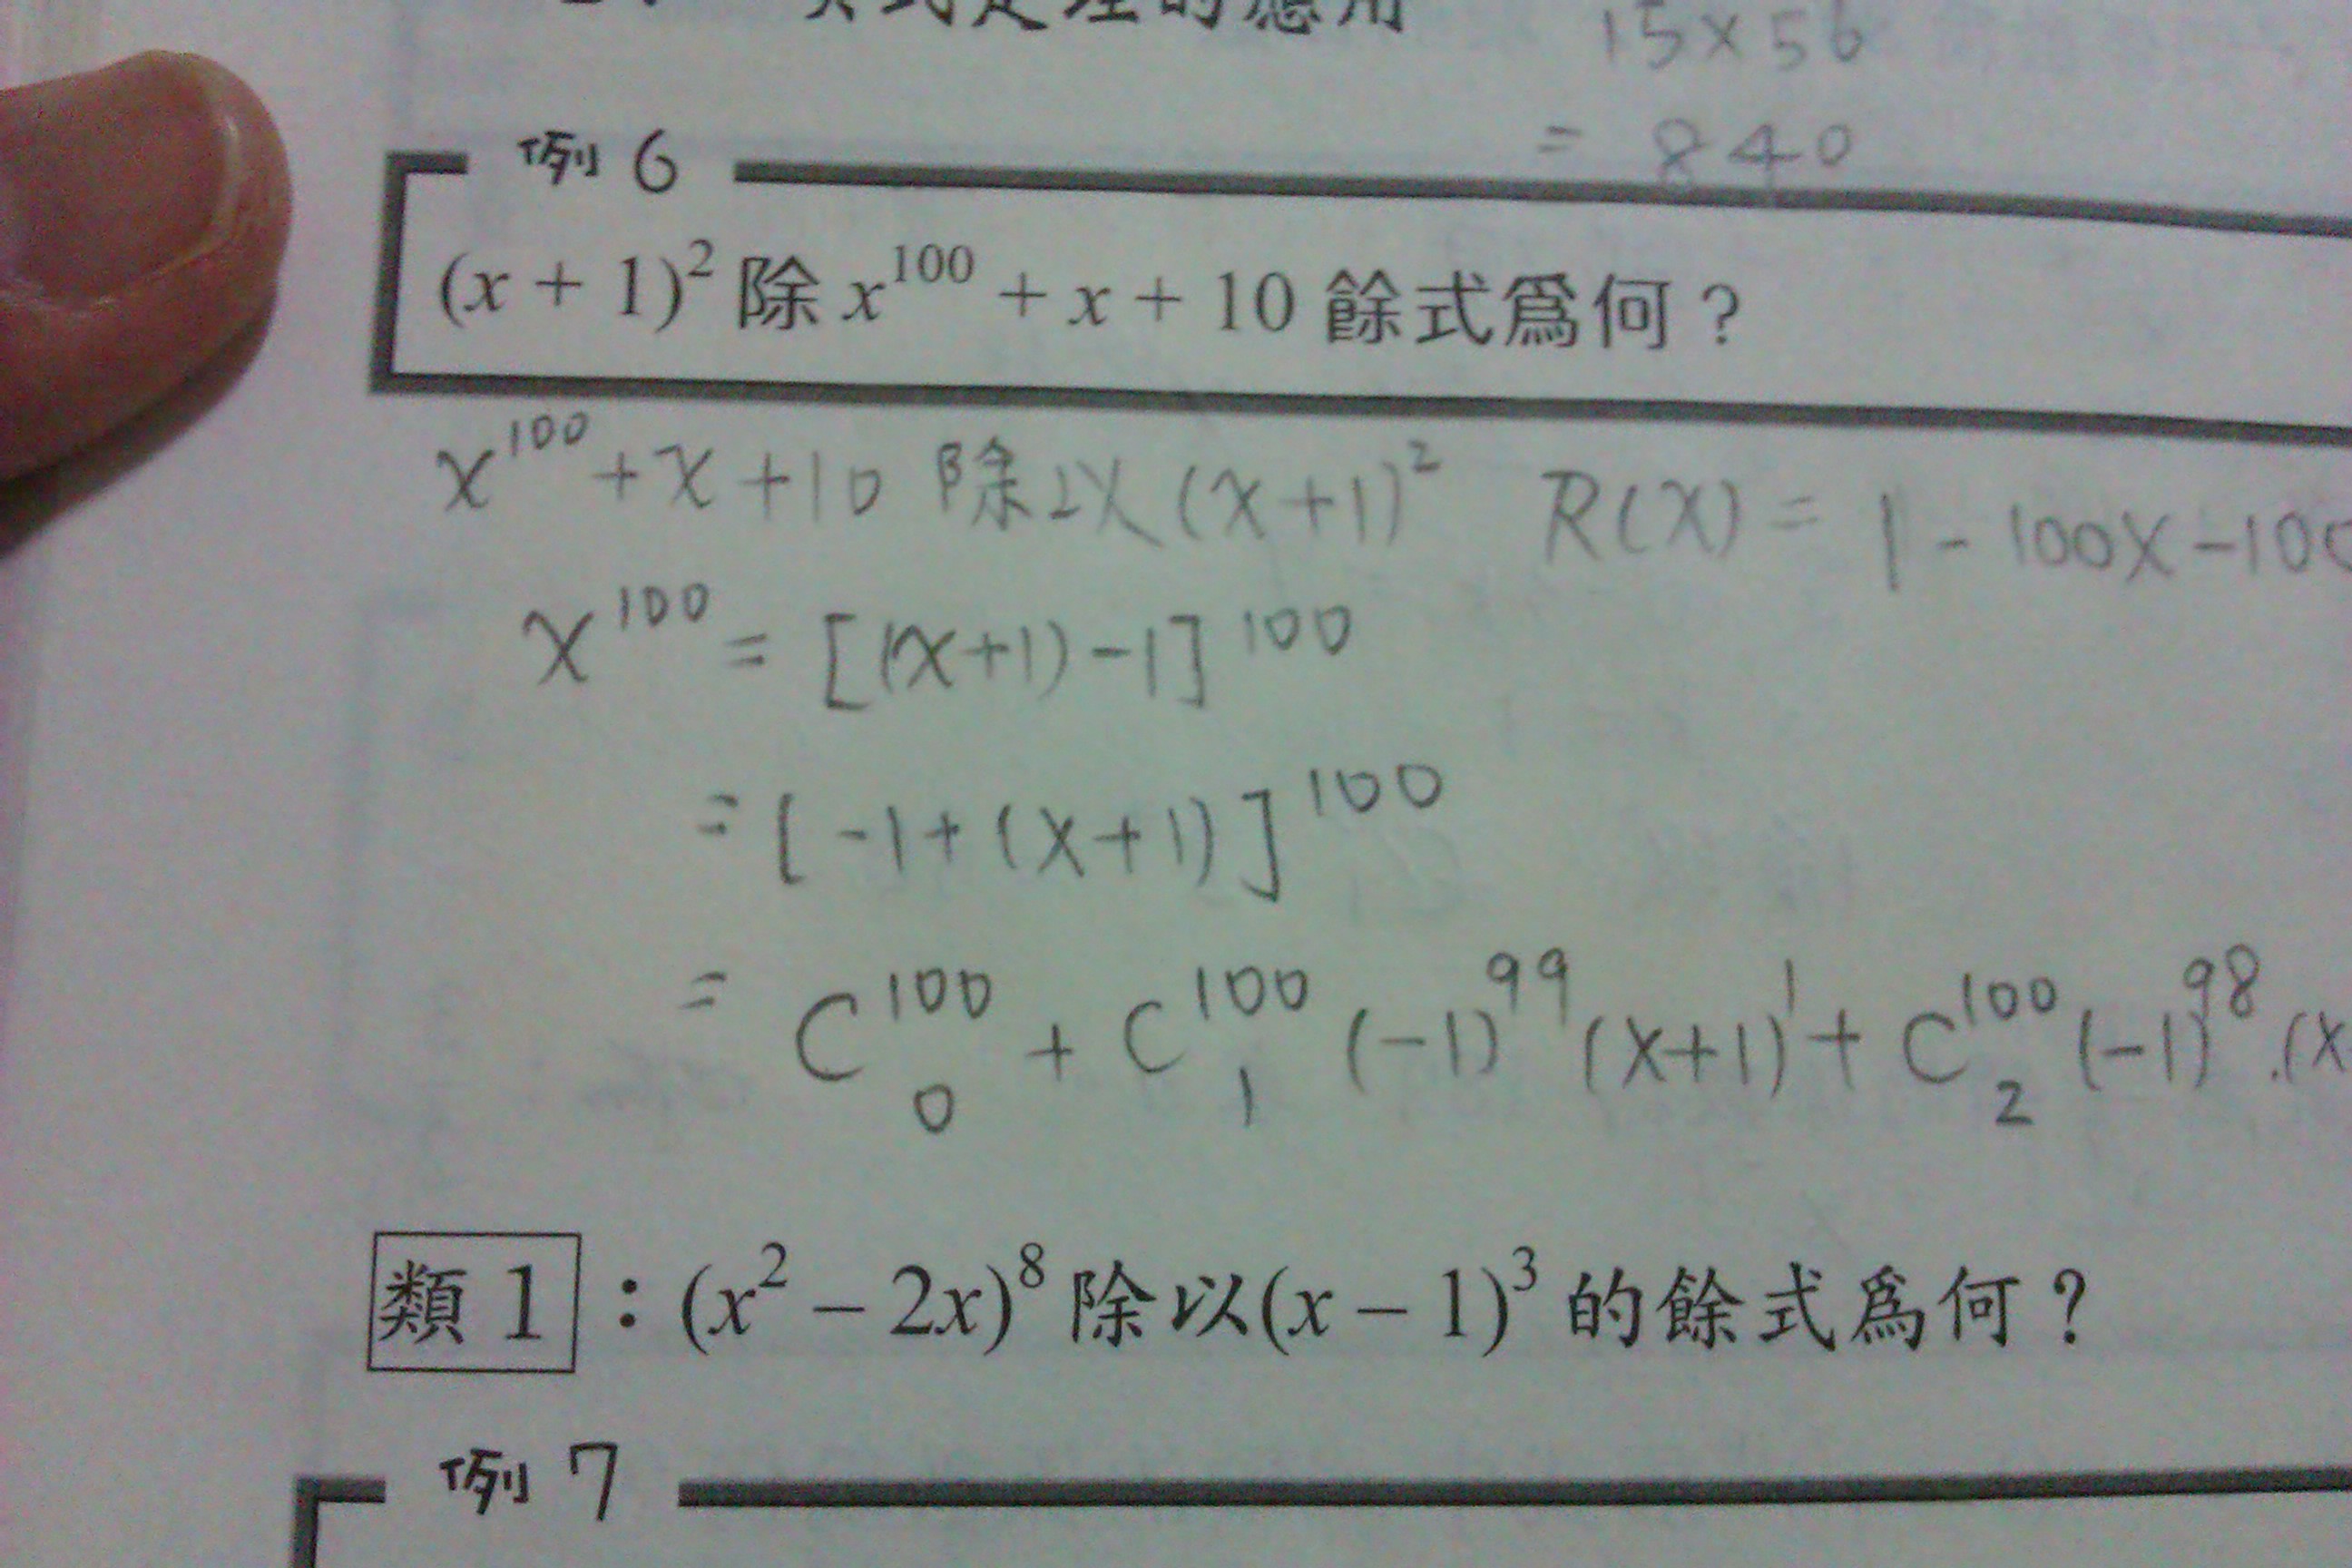 式定理的應用
15×56
= 840
例 6
(x + 1)² 除 x¹⁰⁰ + x + 10 餘式爲何？
x¹⁰⁰ + x + 10 除以 (x+1)² R(x) = 1 - 100x - 100
x¹⁰⁰ = [(x+1)-1]¹⁰⁰
= [-1+(x+1)]¹⁰⁰
= C¹⁰⁰₀ + C¹⁰⁰₁ (-1)⁹⁹ (x+1)¹ + C¹⁰⁰₂ (-1)⁹⁸ · (x
類 1 ：(x² – 2x)⁸ 除以(x – 1)³ 的餘式爲何？
例 7